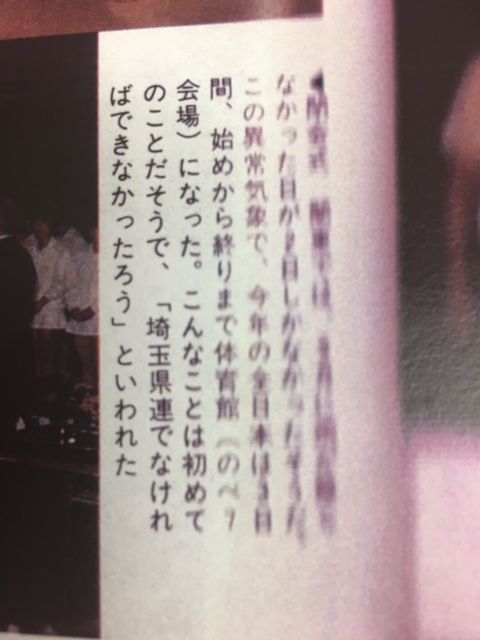 ◀閉会式 関東では、8月に雨の降ら
なかった日が2日しかなかったそうだ。
この異常気象で、今年の全日本は3日
間、始めから終りまで体育館（のべ7
会場）になった。こんなことは初めて
のことだそうで、「埼玉県連でなけれ
ばできなかったろう」といわれた